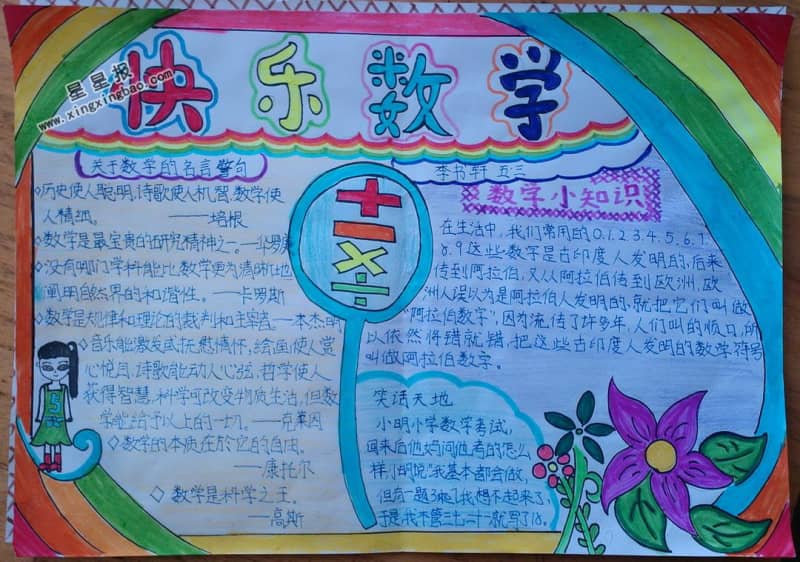 星星报
www.xingxingbao.com
快乐数学
关于数学的名言警句
李书轩 五·三
◇历史使人聪明,诗歌使人机智,数学使
人精细。 ——培根
◇数学是最宝贵的研究精神之一。—华罗庚
◇没有哪门学科能比数学更为清晰地
阐明自然界的和谐性。—卡罗斯
◇数学是规律和理论的裁判和主宰者。—本杰明
◇音乐能激发或抚慰情怀,绘画使人赏
心悦目,诗歌能动人心弦,哲学使人
获得智慧,科学可改变物质生活,但数
学能给予以上的一切。—克莱因
◇数学的本质在於它的自由。
—康托尔
◇数学是科学之王。
—高斯
+
-
×
÷
数学小知识
在生活中,我们常用的0.1.2.3.4.5.6.7.
8.9这些数字是古印度人发明的,后来
传到阿拉伯,又从阿拉伯传到欧洲,欧
洲人误以为是阿拉伯人发明的,就把它们叫做
“阿拉伯数字”,因为流传了许多年,人们叫的顺口,所
以依然将错就错,把这些古印度人发明的数学符号
叫做阿拉伯数字。
笑话天地
小明小学数学考试,
回来后他妈问他考的怎么
样,小明说“我基本都会做,
但有一题3乘7我想不起来了,
于是我不管三七二十一就写了18。